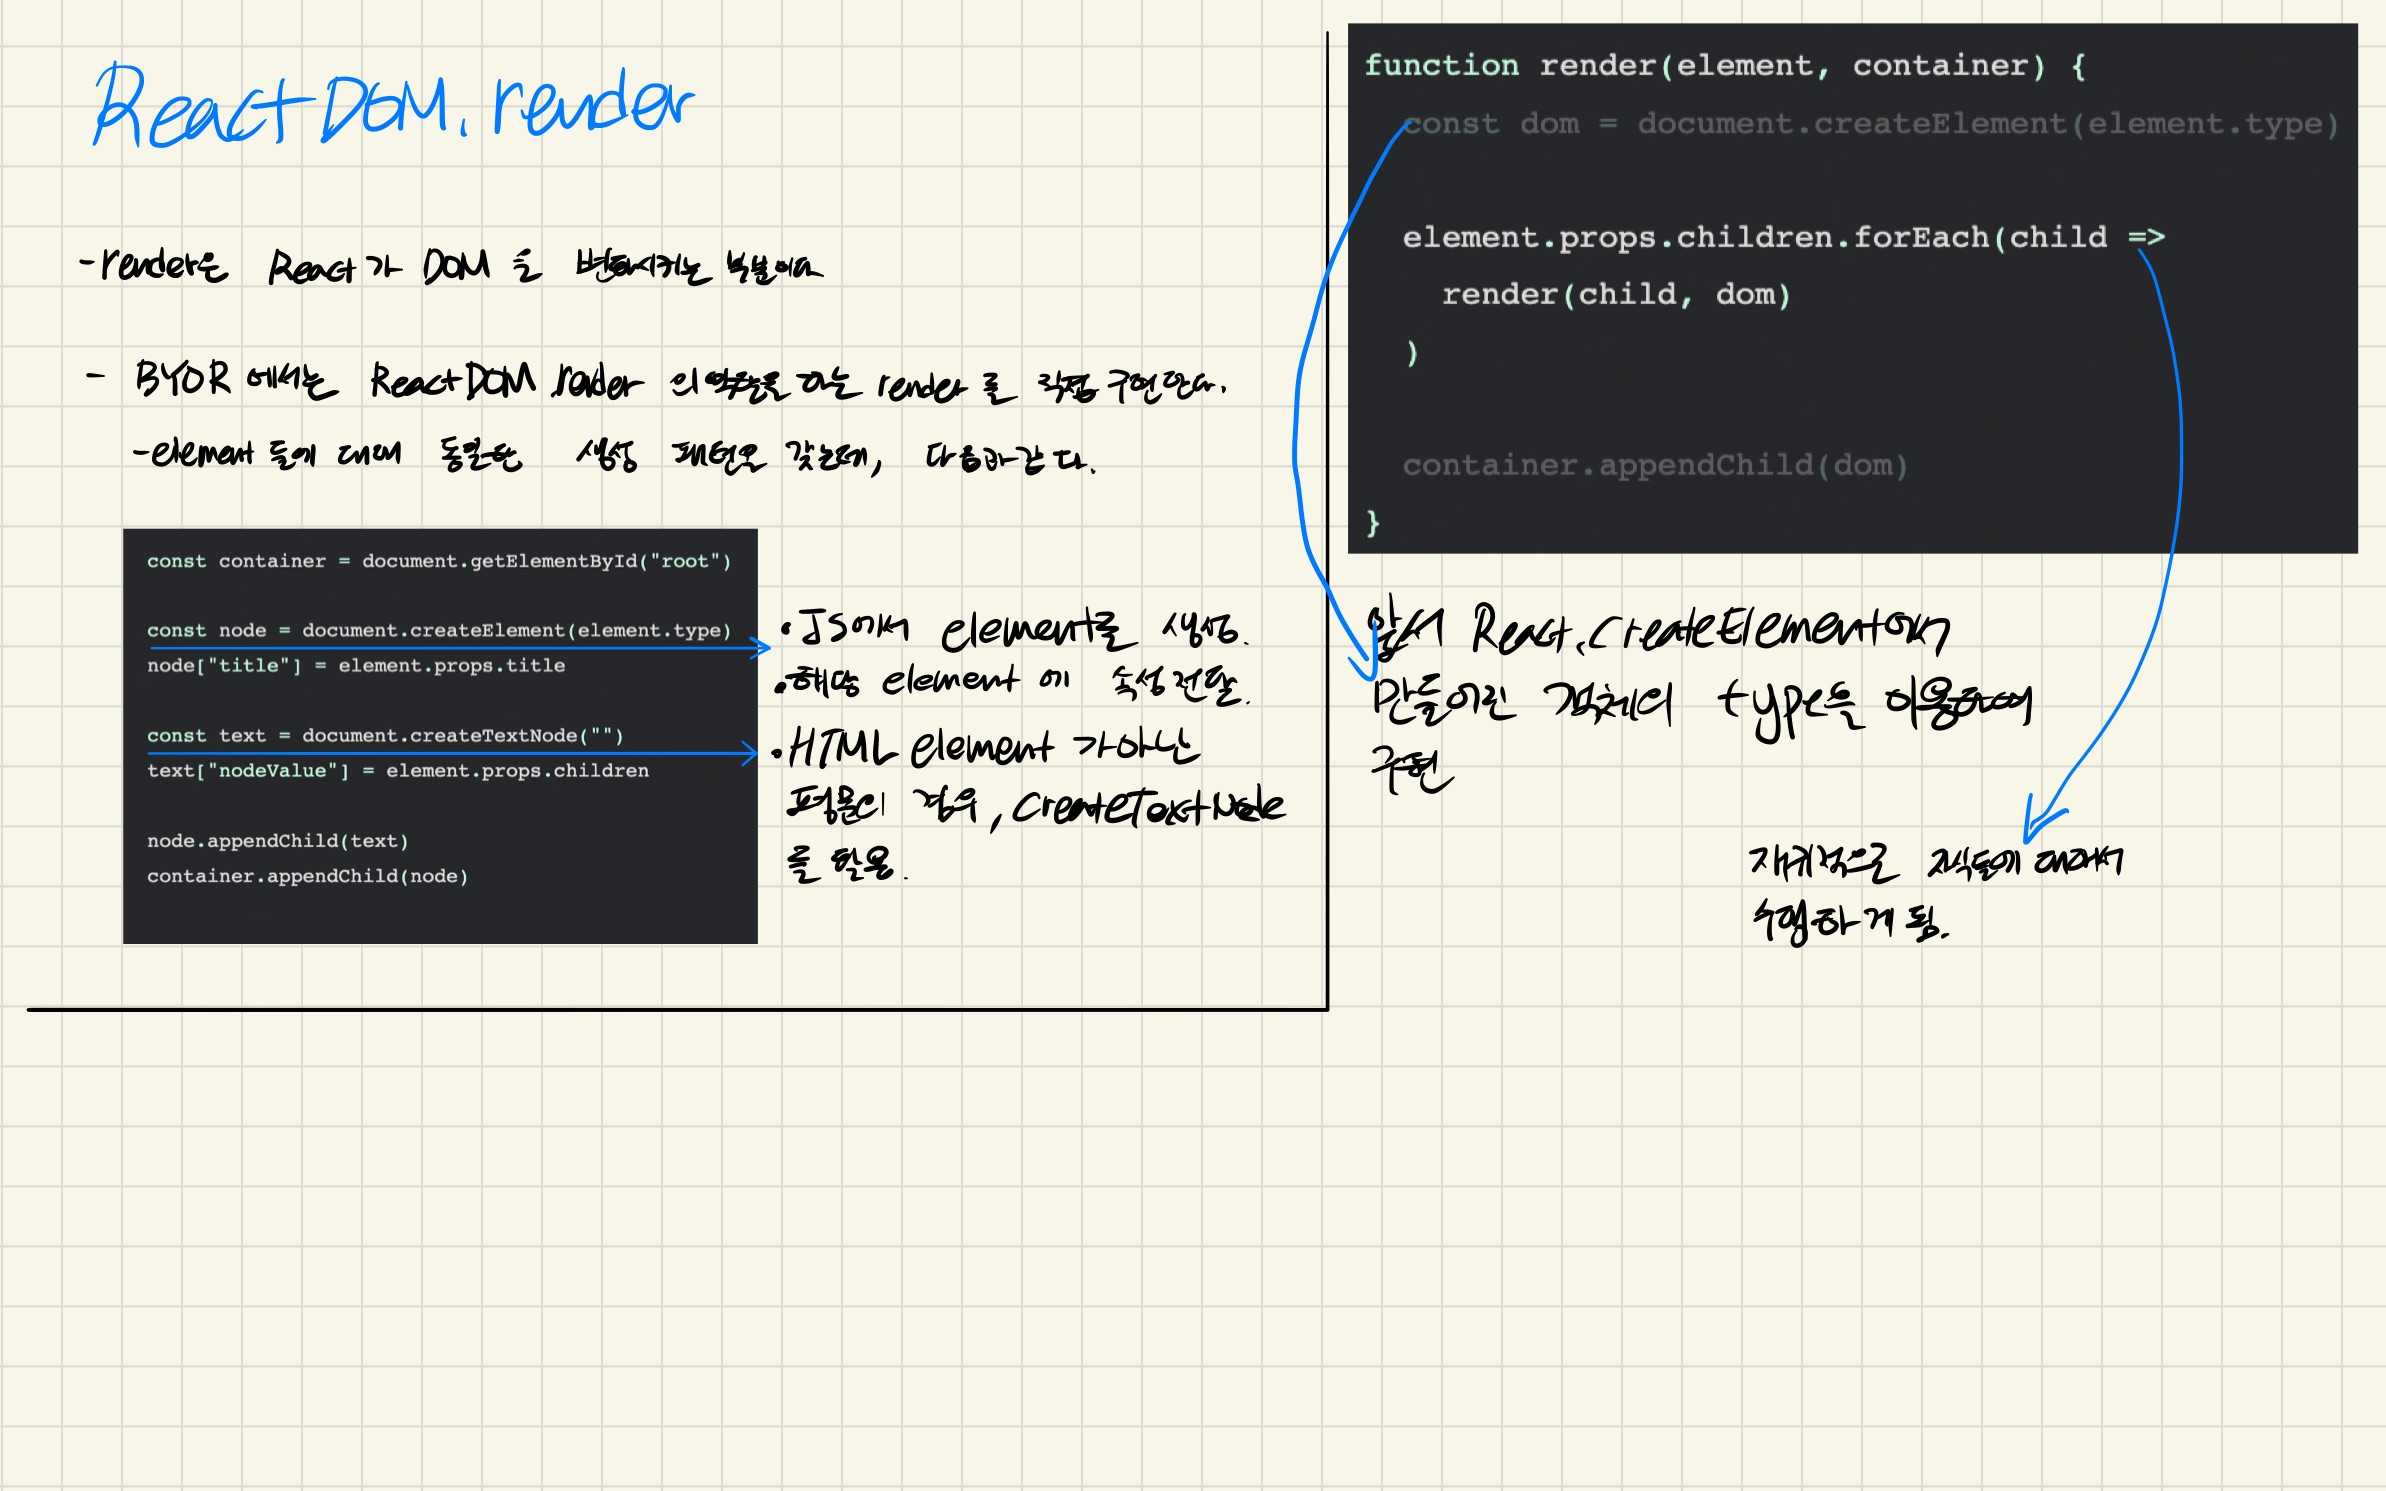 ReactDOM.render
-render은 React가 DOM을 변화시키는 부분이다
- BYOR에서는 ReactDOM.render의 역할을 하는 render를 직접 구현한다.
-element들에 대해 동일한 생성 패턴을 갖는데, 다음과 같다.
const container = document.getElementById("root")
const node = document.createElement(element.type)
node["title"] = element.props.title
const text = document.createTextNode("")
text["nodeValue"] = element.props.children
node.appendChild(text)
container.appendChild(node)
•JS에서 element를 생성.
•해당 element에 속성 전달.
•HTML element가 아닌
평문인 경우, createTextNode
를 활용.
function render(element, container) {
const dom = document.createElement(element.type)
element.props.children.forEach(child =>
render(child, dom)
)
container.appendChild(dom)
}
앞서 React.createElement에서
만들어진 객체의 type을 이용하여
구현
재귀적으로 자식들에 대해서
수행하게 됨.